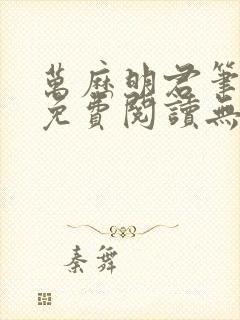 萬麻明君筆
免費閱讀無
秦舞